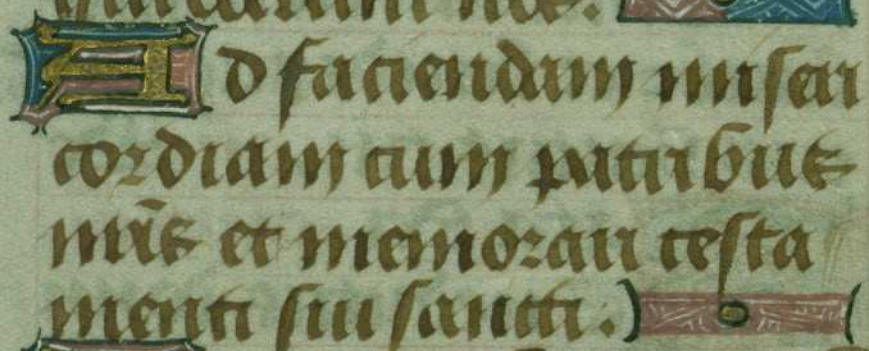 Ad faciendam miseri
cordiam cum patribus
nr̃is et memorari testa
menti sui sancti.